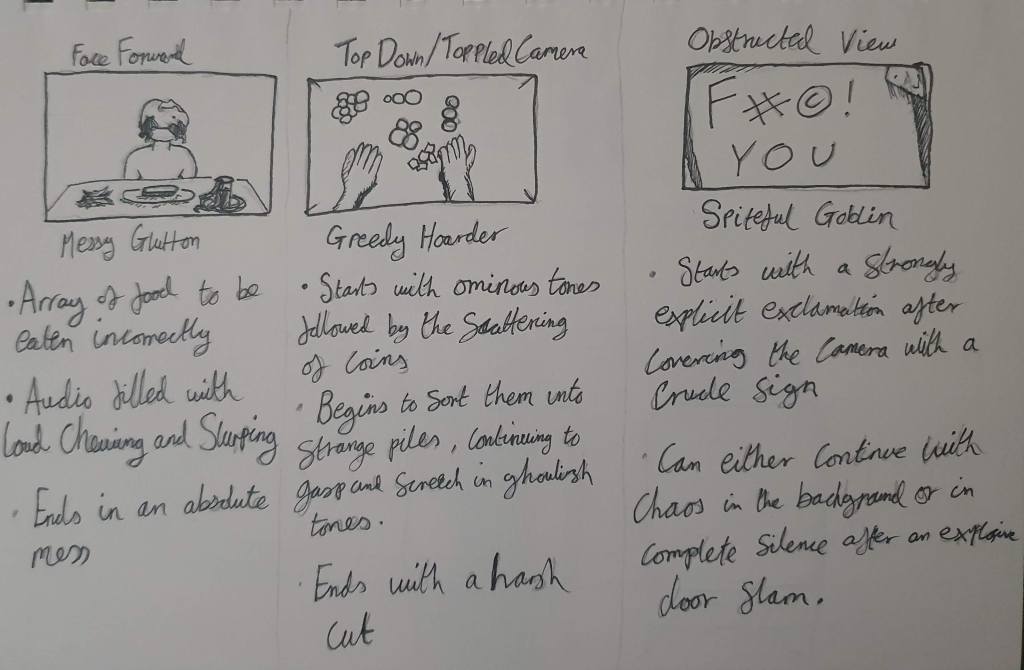 Face Forward
Messy Glutton
• Array of food to be
eaten incorrectly
• Audio filled with
Loud Chewing and Slurping
• Ends in an absolute
mess
Top Down/Toppled Camera
Greedy Hoarder
• Starts with ominous tones
followed by the Scattering
of Coins
• Begins to Sort them into
Strange piles, Continuing to
gasp and Screech in ghoulish
tones.
• Ends with a harsh
cut
Obstructed View
F#©!
YOU
Spiteful Goblin
• Starts with a Strongly
explicit exclamation after
Covering the Camera with a
Crude Sign
• Can either Continue with
Chaos in the background or in
Complete Silence after an explosive
door Slam.